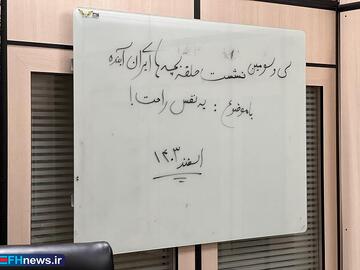 سی و سومین نشست حلقه بچه های ایران آینده
با موضوع : یه نفس راحت!
اسفند ۱۴۰۳
FHnews.ir